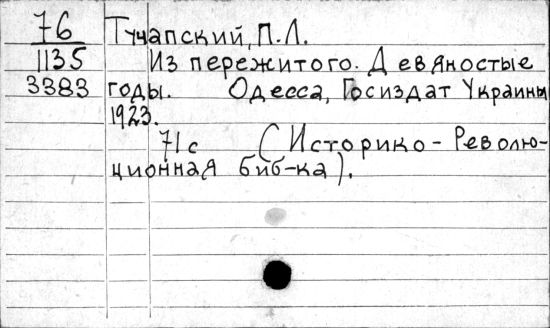 76 Тучапский, П.Л.
1135 Из пережитого. Девяностые
3383 годы. Одесса, Госиздат Украины
1923.
71с (Историко-Револю-
ционная биб-ка).